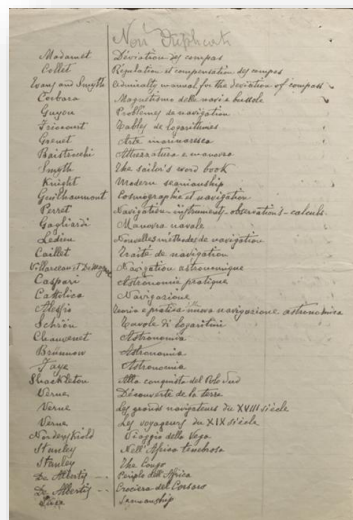 Non duplicati
Madamet Déviation des compas
Collet Régulation et compensation des compas
Evans and Smyth Admiralty manual for the deviation of compass
Corbara Magnetismo delle navi e bussole
Guyou Problemes de navigation
Friocourt Tables de logarithmes
Grenet Arte marinaresca
Baistrocchi Attrezzatura e manovra
Smyth The sailor's word book
Knight Modern seamanship
Guilhaumont Cosmographie et navigation
Perret Navigation - instruments, observations - calculs
Gagliardi Manovra navale
Ledieu Nouvelles méthodes de navigation
Caillet Traité de navigation
Villarceau et De Magnac Navigation astronomique
Caspari Astronomie pratique
Cattolica Navigazione
Alessio Teoria e pratica nuova navigazione astronomica
Schrön Tavole di logaritmi
Chauvenet Astronomia
Brünnow Astronomia
Faye Astronomia
Shackleton Alla conquista del Polo Sud
Verne Découverte de la terre
Verne Les grands navigateurs du XVIII siècle
Verne Les voyageurs du XIX siècle
Nordenskiold Viaggio della Vega
Stanley Nell'Africa tenebrosa
Stanley The Congo
De Albertis Periplo dell'Africa
De Albertis Crociera del Corsaro
Seamanship